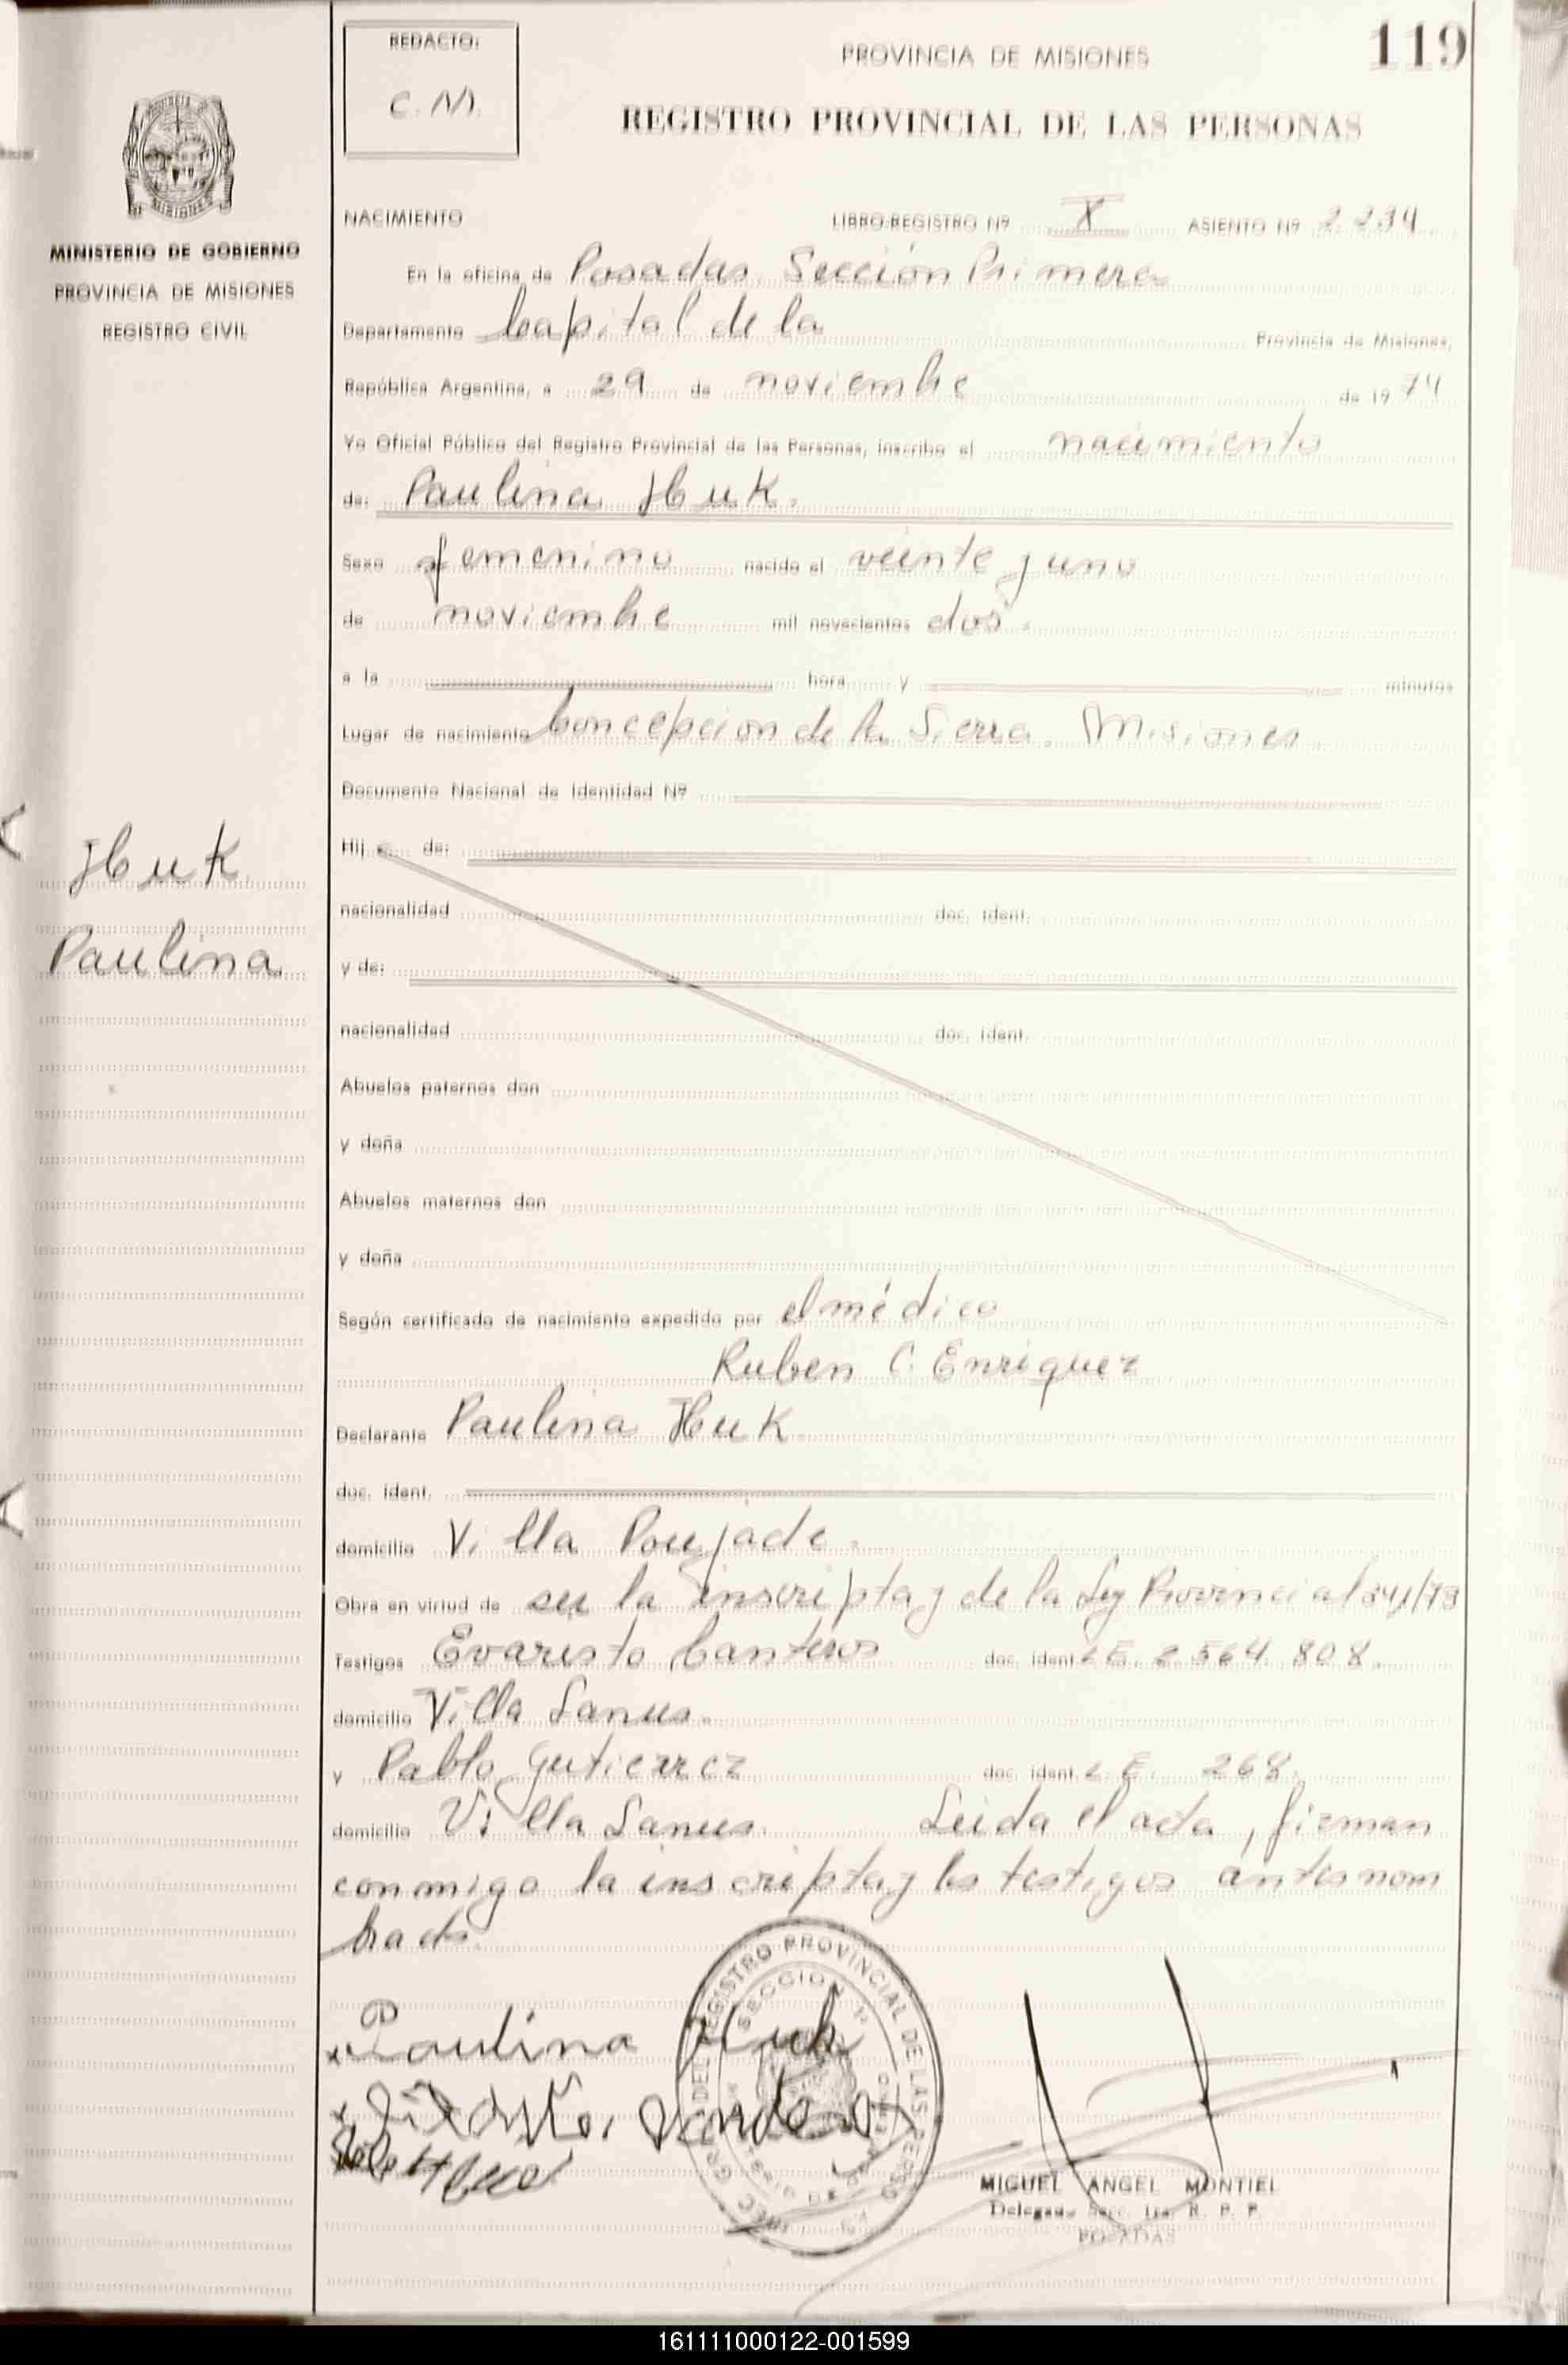 REDACTO:
C. M.
PROVINCIA DE MISIONES
119
REGISTRO PROVINCIAL DE LAS PERSONAS
MINISTERIO DE GOBIERNO
PROVINCIA DE MISIONES
REGISTRO CIVIL
NACIMIENTO LIBRO-REGISTRO Nº X ASIENTO Nº 2234
En la oficina de Posadas Sección Primera
Departamento Capital de la Provincia de Misiones,
República Argentina, a 29 de noviembre de 19 74
Yo Oficial Público del Registro Provincial de las Personas, inscribo el nacimiento
de: Paulina Huk.
Sexo femenino nacido el veinte y uno
de noviembre mil novecientos dos.
a la hora y minutos
Lugar de nacimiento Concepcion de la Sierra. Misiones.
Documento Nacional de Identidad Nº
Huk
Paulina
Hij de:
nacionalidad doc. ident.
y de:
nacionalidad doc. ident.
Abuelos paternos don
y doña
Abuelos maternos don
y doña
Según certificado de nacimiento expedido por el médico
Ruben C. Enriquez
Declarante Paulina Huk
doc. ident.
domicilio Villa Poujade.
Obra en virtud de ser la inscripta y de la Ley Provincial 341/73
Testigos Evaristo Canteros doc. ident. L.E. 2564.808.
domicilio Villa Lanus.
y Pablo Gutierrez doc. ident. L.E. 268.
domicilio Villa Lanus. Leida el acta, firman
conmigo la inscripta y los testigos antes nom
brados.
Paulina Huk
REGISTRO PROVINCIAL DE LAS PERSO
SECCION 1ª
MIGUEL ANGEL MONTIEL
Delegado Secc. 1ra. R. P. P.
POSADAS
161111000122-001599